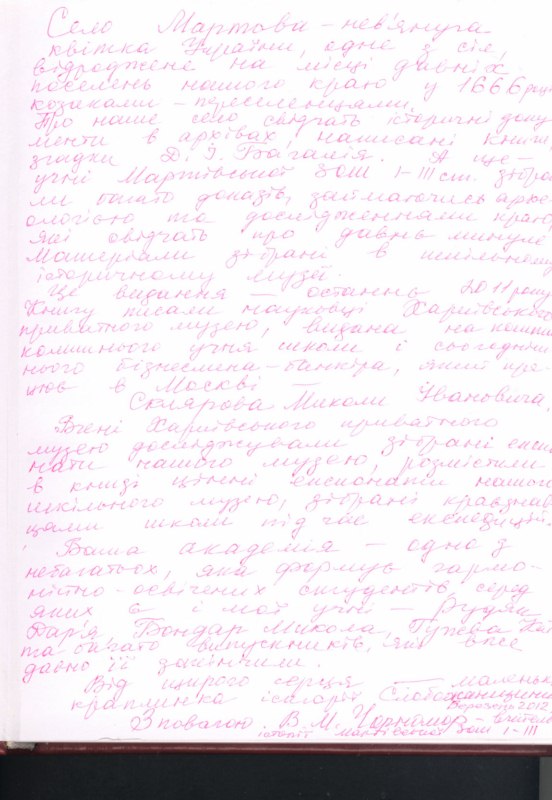 Село Мартова – нев'януча
квітка України, одне з сіл,
відроджене на місці давніх
поселень нашого краю у 1666 році
козаками – переселенцями.
Про наше село свідчать історичні доку
менти в архівах, написані книги,
згадки Д. І. Багалія. А ще –
учні Мартівської ЗОШ I-III ст. зібра
ли багато доказів, займаючись архе-
ологією та дослідженнями краю,
які свідчать про давнє минуле.
Матеріали зібрані в шкільному
історичному музеї.
Це видання – останнє 2011 року.
Книгу писали науковці Харківського
приватного музею, видана на кошти
колишнього учня школи і сьогодніш
нього бізнесмена-банкіра, який пра-
цює в Москві –
Склярова Миколи Івановича.
Вчені Харківського приватного
музею досліджували зібрані експо
нати нашого музею, розмістили
в книзі цінні експонати нашого
шкільного музею, зібрані краєзнав
цями школи під час експедицій.
Ваша академія – одна з
небагатьох, яка формує гармо-
нійно-освічених студентів, серед
яких є і мої учні –
Дар'я, Бондар Микола,
та багато випускників, які вже
давно її закінчили.
Від щирого серця – маленька
краплинка історії Слобожанщини
Березень 2012
З повагою В. М. Чорномор – вчитель
історії Мартівської ЗОШ I-III